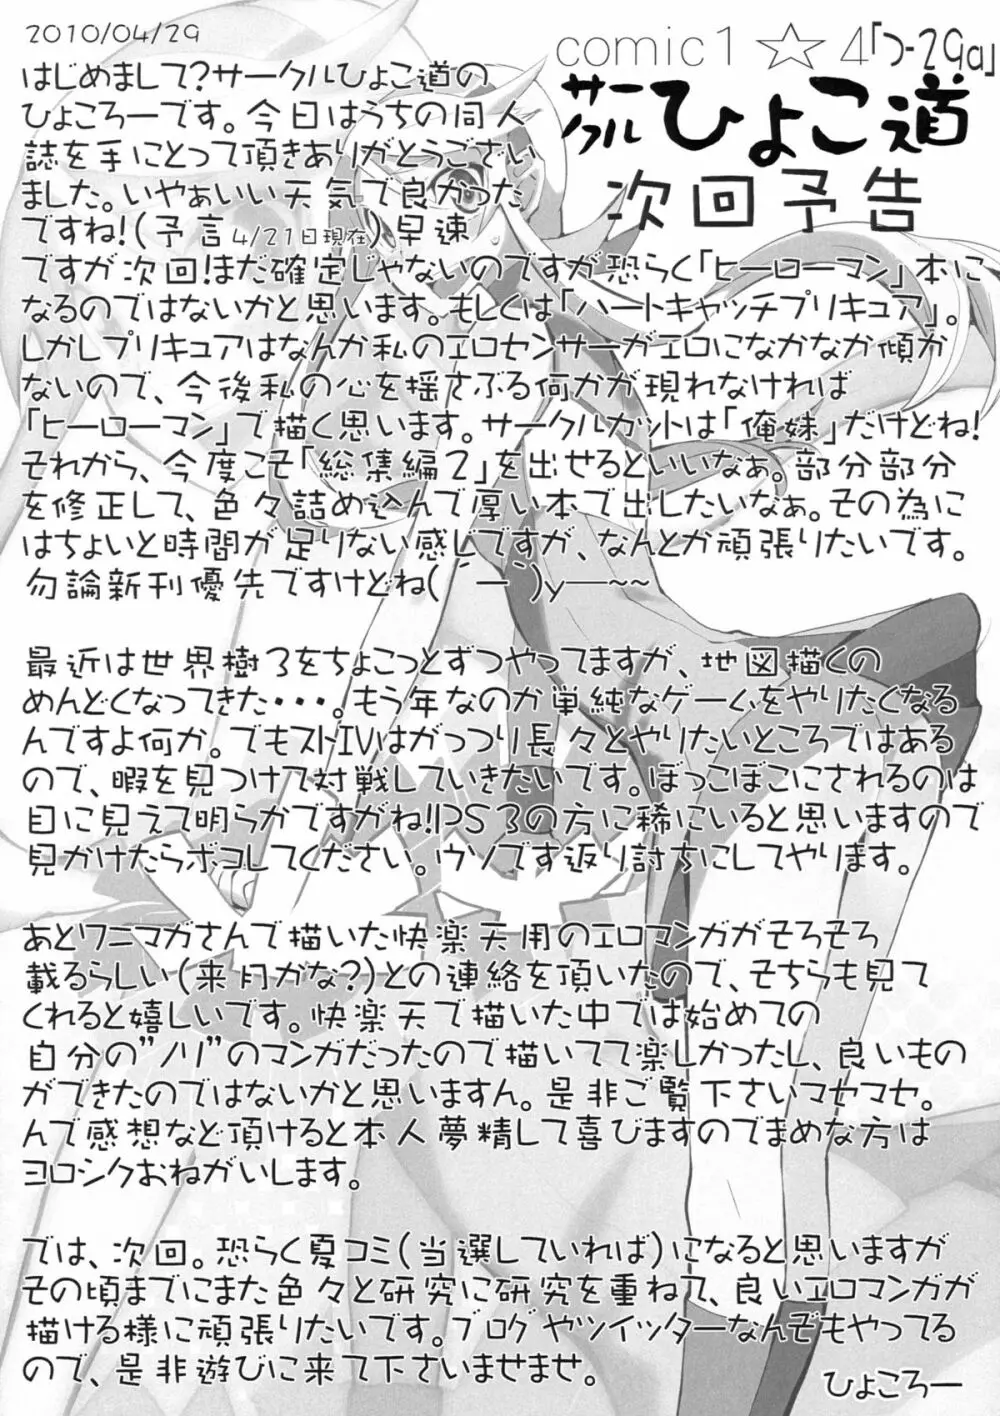 2010/04/29
comic1 ☆ 4「つ-29a」
サークルひよこ道
次回予告
はじめまして?サークルひよこ道の
ひよころーです。今日はうちの同人
誌を手にとって頂きありがとうござい
ました。いやぁいい天気で良かった
ですね!(予言4/21日現在)早速
ですが次回!まだ確定じゃないのですが恐らく「ヒーローマン」本に
なるのではないかと思います。もしくは「ハートキャッチプリキュア」。
しかしプリキュアはなんか私のエロセンサーがエロになかなか傾か
ないので、今後私の心を揺さぶる何かが現れなければ
「ヒーローマン」で描く思います。サークルカットは「俺妹」だけどね!
それから、今度こそ「総集編2」を出せるといいなぁ。部分部分
を修正して、色々詰め込んで厚い本で出したいなぁ。その為に
はちょいと時間が足りない感じですが、なんとか頑張りたいです。
勿論新刊優先ですけどね( ´ー`)y―~~
最近は世界樹3をちょこっとずつやってますが、地図描くの
めんどくなってきた・・・。もう年なのか単純なゲームをやりたくなる
んですよ何か。でもストIVはがっつり長々とやりたいところではある
ので、暇を見つけて対戦していきたいです。ぼっこぼこにされるのは
目に見えて明らかですがね!!PS3の方に稀にいると思いますので
見かけたらボコしてください。ウソです返り討ちにしてやります。
あとワニマガさんで描いた快楽天用のエロマンガがそろそろ
載るらしい(来月かな?)との連絡を頂いたので、そちらも見て
くれると嬉しいです。快楽天で描いた中では始めての
自分の"ノリ"のマンガだったので描いてて楽しかったし、良いもの
ができたのではないかと思いますん。是非ご覧下さいマセマセ。
んで感想など頂けると本人夢精して喜びますのでまめな方は
ヨロシクおねがいします。
では、次回。恐らく夏コミ(当選していれば)になると思いますが
その頃までにまた色々と研究に研究を重ねて、良いエロマンガが
描ける様に頑張りたいです。ブログやツイッターなんぞもやってる
ので、是非遊びに来て下さいませませ。
ひよころー